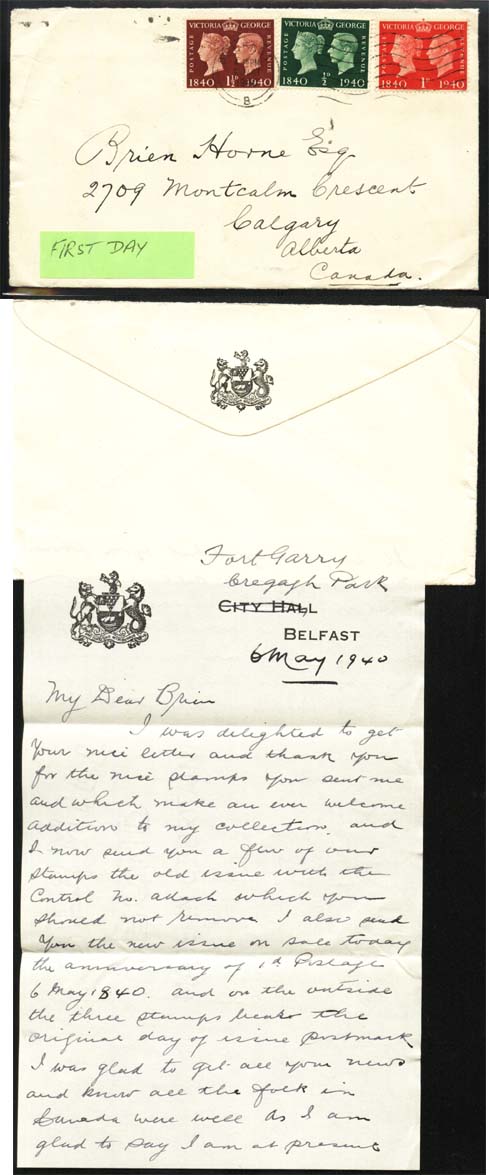 VICTORIA GEORGE
POSTAGE REVENUE
1840 1½D 1940
VICTORIA GEORGE
POSTAGE REVENUE
1840 ½D 1940
VICTORIA GEORGE
POSTAGE REVENUE
1840 1D 1940
B
Brien Horne Esq
2709 Montcalm Crescent
Calgary
Alberta
Canada.
FIRST DAY
Fort Garry
Cregagh Park
CITY HALL
BELFAST
6 May 1940
My Dear Brien
I was delighted to get
your nice letter and thank you
for the nice stamps you sent me
and which make an ever welcome
addition to my collection. and
I now send you a few of our
stamps the old issue with the
Control No. attach which you
should not remove I also send
you the new issue on sale today
the anniversary of 1d Postage
6 May 1840. and on the outside
the three stamps bears the
original day of issue postmark
I was glad to get all your news
and know all the folk in
Canada were well as I am
glad to say I am at present